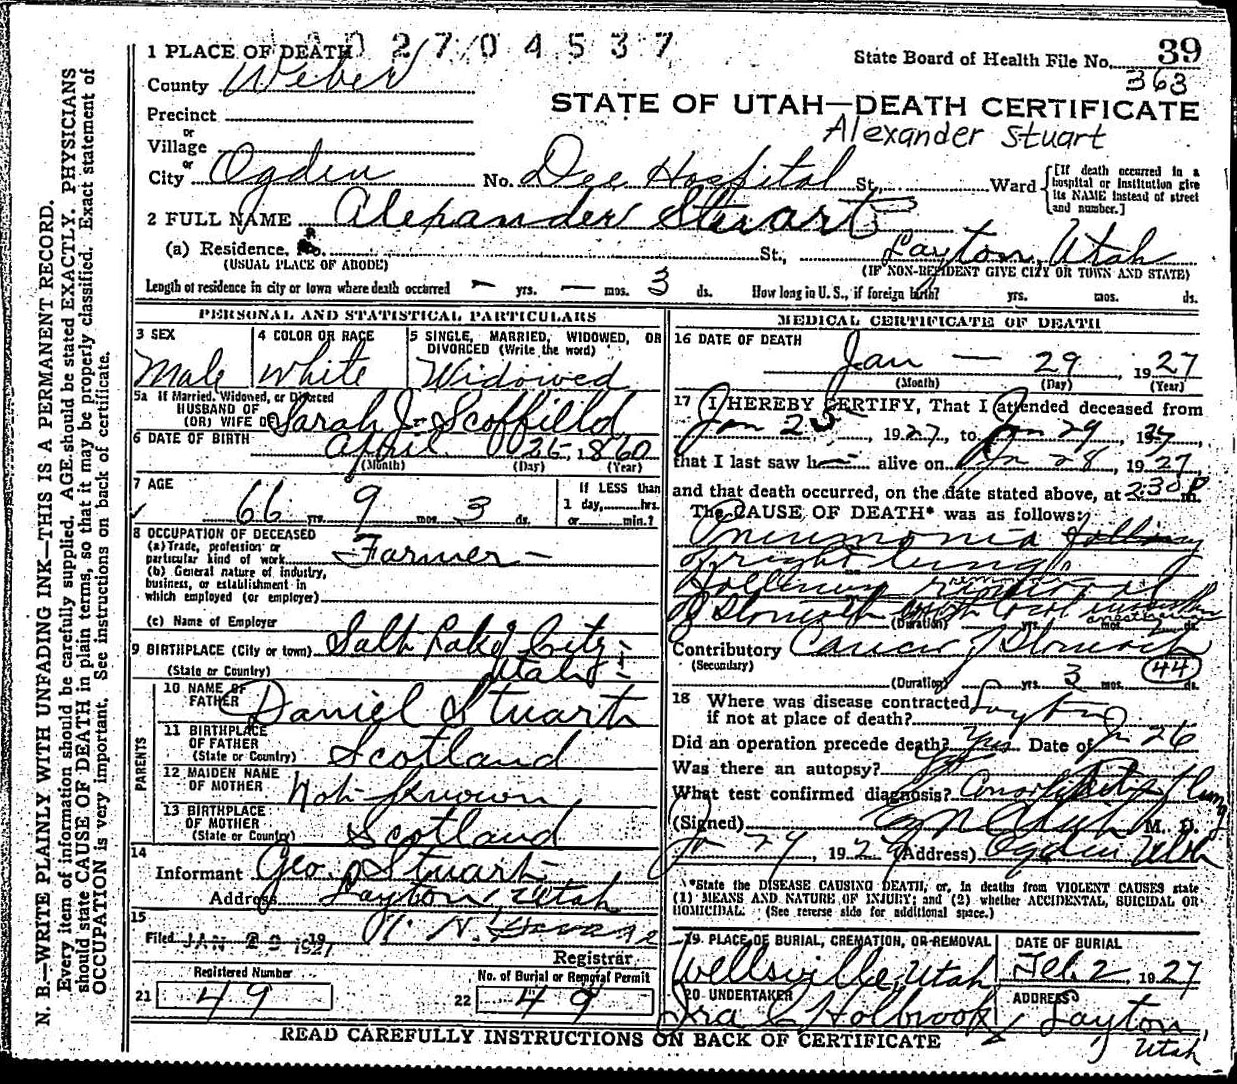 N. B.—WRITE PLAINLY WITH UNFADING INK—THIS IS A PERMANENT RECORD.
Every item of information should be carefully supplied. AGE should be stated EXACTLY. PHYSICIANS
should state CAUSE OF DEATH in plain terms, so that it may be properly classified. Exact statement of
OCCUPATION is very important. See instructions on back of certificate.
1 PLACE OF DEATH
0 2 7 0 4 5 3 7
State Board of Health File No. 39
363
County Weber
STATE OF UTAH—DEATH CERTIFICATE
Alexander Stuart
Precinct
or
Village
or
City Ogden No. Dee Hospital St., Ward
[If death occurred in a hospital or institution give its NAME instead of street and number.]
2 FULL NAME Alexander Stuart
(a) Residence, No. St., Layton, Utah
(USUAL PLACE OF ABODE) (IF NON-RESIDENT GIVE CITY OR TOWN AND STATE)
Length of residence in city or town where death occurred — yrs. — mos. 3 ds. How long in U. S., if foreign birth? yrs. mos. ds.
PERSONAL AND STATISTICAL PARTICULARS
3 SEX
Male
4 COLOR OR RACE
White
5 SINGLE, MARRIED, WIDOWED, OR
DIVORCED (Write the word)
Widowed
5a If Married, Widowed, or Divorced
HUSBAND OF
(OR) WIFE OF Sarah J. Scoffield
6 DATE OF BIRTH April 26, 1860
(Month) (Day) (Year)
7 AGE
66 yrs. 9 mos. 3 ds.
If LESS than
1 day, hrs.
or min.?
8 OCCUPATION OF DECEASED
(a) Trade, profession or
particular kind of work Farmer —
(b) General nature of industry,
business, or establishment in
which employed (or employer)
(c) Name of Employer
9 BIRTHPLACE (City or town) Salt Lake City
(State or Country) Utah
PARENTS
10 NAME OF
FATHER Daniel Stuart
11 BIRTHPLACE
OF FATHER
(State or Country) Scotland
12 MAIDEN NAME
OF MOTHER Not Known
13 BIRTHPLACE
OF MOTHER
(State or Country) Scotland
14
Informant Geo. Stuart
Address Layton, Utah
15
Filed JAN 29 1927
Registrar
Registered Number
21 49
No. of Burial or Removal Permit
22 49
MEDICAL CERTIFICATE OF DEATH
16 DATE OF DEATH
Jan — 29, 1927
(Month) (Day) (Year)
17 I HEREBY CERTIFY, That I attended deceased from
Jan 25, 1927, to Jan 29, 1927,
that I last saw h alive on Jan 28, 1927
and that death occurred, on the date stated above, at 2:30 P m.
The CAUSE OF DEATH* was as follows:
Pneumonia
of right lung
following removal
of Stomach Local
anesthesia
(Duration) yrs. mos. ds.
Contributory Cancer of Stomach
(Secondary)
(Duration) yrs. 3 mos. ds.
44
18 Where was disease contracted
if not at place of death? Layton
Did an operation precede death? Yes Date of Jan 26
Was there an autopsy?
What test confirmed diagnosis? Consolidation of lung
(Signed) M. D.
Jan 29, 1929 (Address) Ogden Utah
*State the DISEASE CAUSING DEATH, or, in deaths from VIOLENT CAUSES state
(1) MEANS AND NATURE OF INJURY; and (2) whether ACCIDENTAL, SUICIDAL OR
HOMICIDAL. (See reverse side for additional space.)
19. PLACE OF BURIAL, CREMATION, OR REMOVAL
Wellsville, Utah
DATE OF BURIAL
Feb. 2, 1927
20 UNDERTAKER
Ira C Holbrook
ADDRESS
Layton,
Utah
READ CAREFULLY INSTRUCTIONS ON BACK OF CERTIFICATE